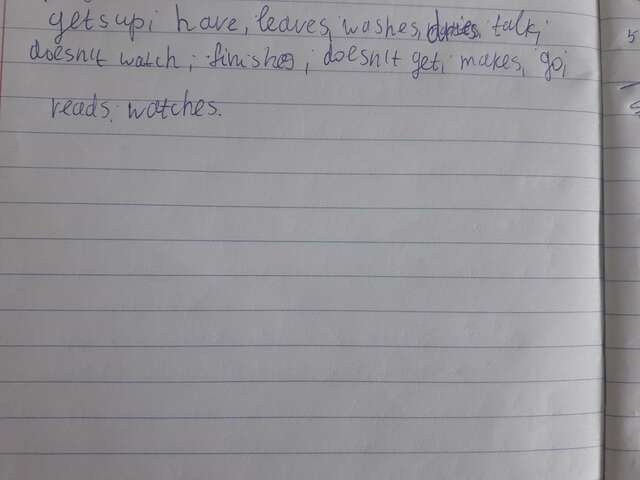 gets up; have, leaves, washes, dries, talk;
doesn't watch; finishes; doesn't get; makes, go;
reads; watches.
5